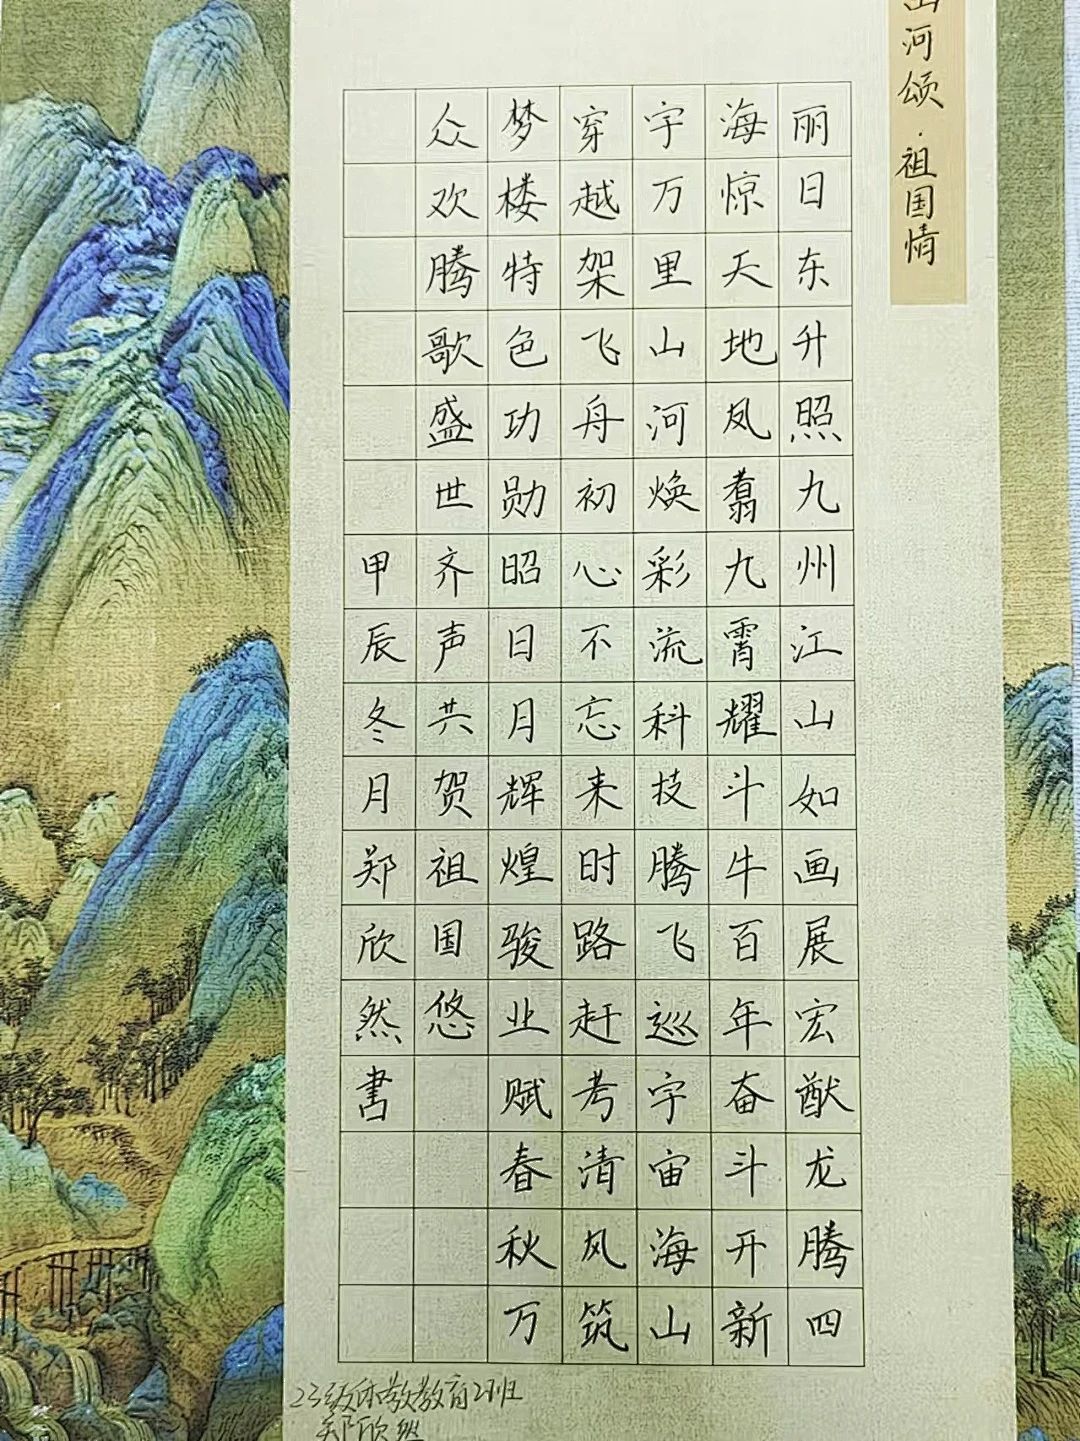 山河颂·祖国情
丽日东升照九州江山如画展宏猷龙腾四
海惊天地凤翥九霄耀斗牛百年奋斗开新
宇万里山河焕彩流科技腾飞巡宇宙海山
穿越架飞舟初心不忘来时路赶考清风筑
梦楼特色功勋昭日月辉煌骏业赋春秋万
众欢腾歌盛世齐声共贺祖国悠
甲辰冬月郑欣然書
23级体教教育2班
郑欣然